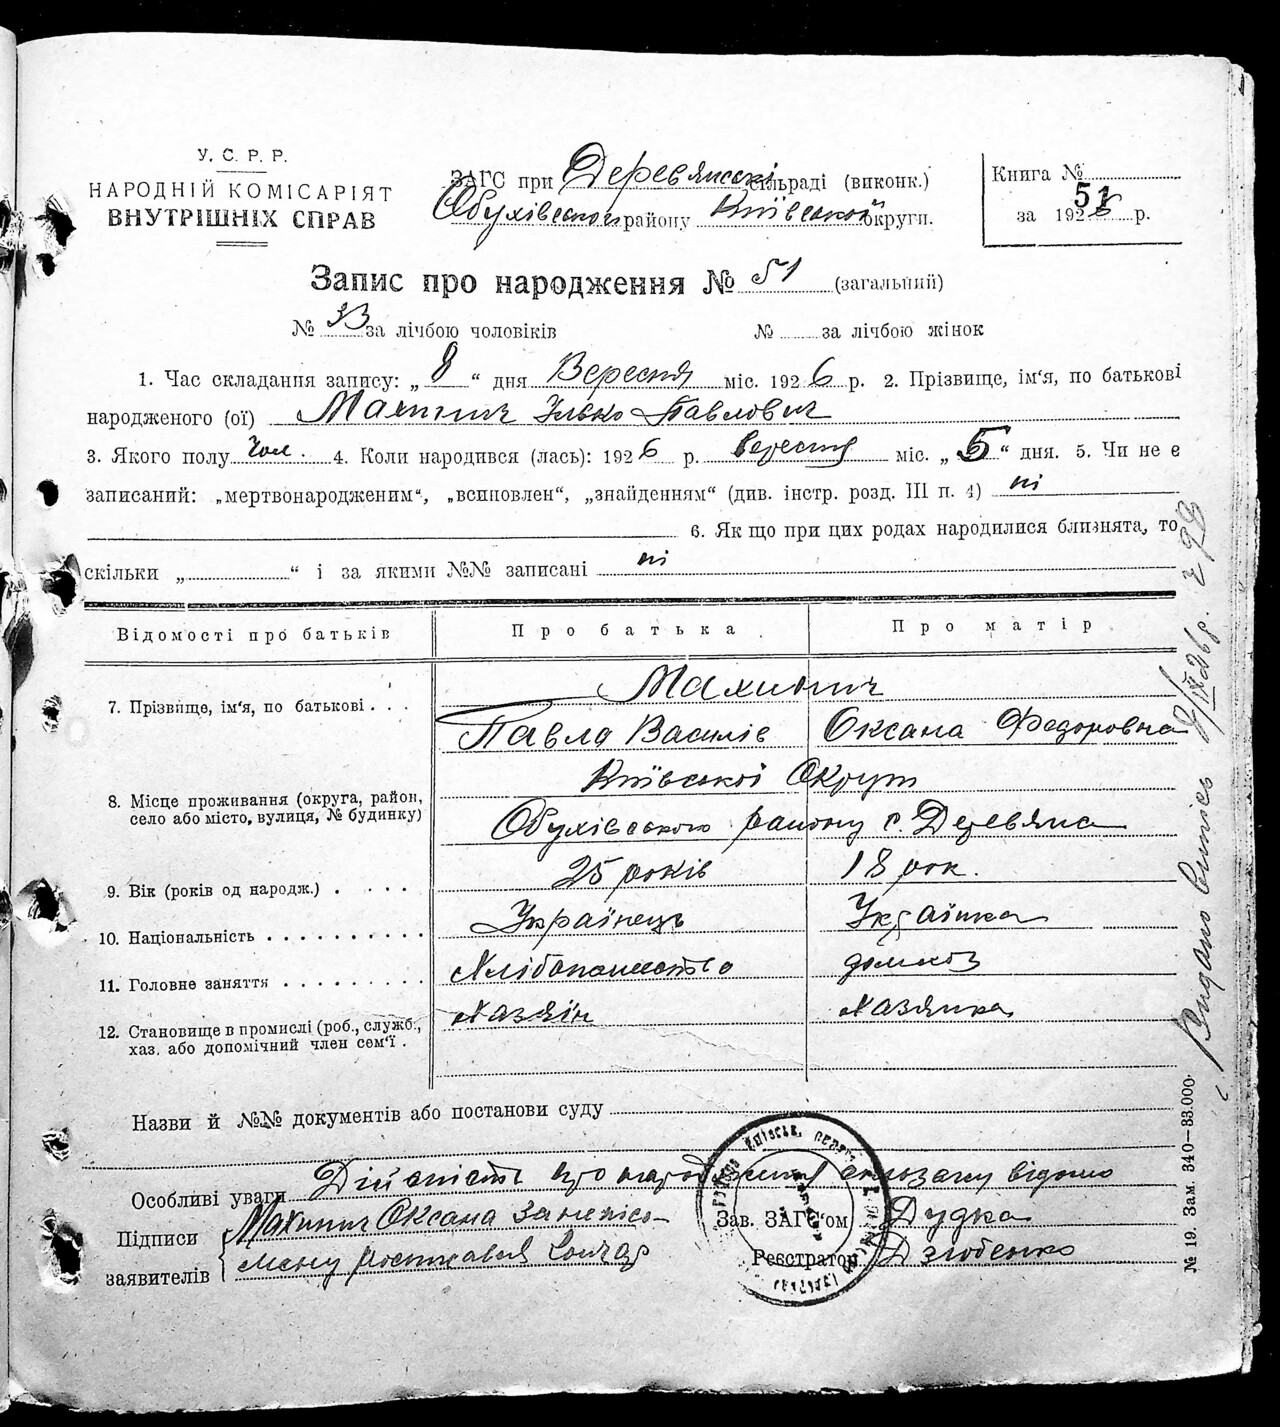 У. С. Р. Р.
НАРОДНІЙ КОМІСАРІЯТ
ВНУТРІШНІХ СПРАВ
ЗАГС при Деревянській сільраді (виконк.)
Обухівського району Київської округи.
Книга №
51
за 1926 р.
Запис про народження № 51 (загальний)
№ 33 за лічбою чоловіків № за лічбою жінок
1. Час складання запису: „ 8 “ дня Вересня міс. 1926 р. 2. Прізвище, ім'я, по батькові
народженого (ої) Махинич Ілько Павлович
3. Якого полу чол. 4. Коли народився (лась): 1926 р. вересня міс. „ 5 “ дня. 5. Чи не є
записаний: „мертвонародженим“, „всиновлен“, „знайденням“ (див. інстр. розд. III п. 4) ні
6. Як що при цих родах народилися близнята, то
скільки „ “ і за якими №№ записані ні
Відомості про батьків Про батька Про матір
7. Прізвище, ім'я, по батькові . . . Махинич
Павло Василів Оксана Федоровна
Київської Округи
8. Місце проживання (округа, район,
село або місто, вулиця, № будинку) Обухівського району с. Деревяна
9. Вік (років од народж.) . . . . 25 років 18 рок.
10. Національність . . . . . . . . . . Українець Українка
11. Головне заняття . . . . . . . . . Хлібопашество домхоз
12. Становище в промислі (роб., служб.,
хаз. або допомічний член сем'ї . Хазяїн Хазяйка
Назви й №№ документів або постанови суду
Особливі уваги Дійсність про народження відомо
Підписи
заявителів
Махинич Оксана за неписьмену Гончар
Зав. ЗАГС'ом Дудка
Реєстратор Дзюбенко
Видано випись 8/IX 26 р.
№ 19. Зам. 340—83.000.